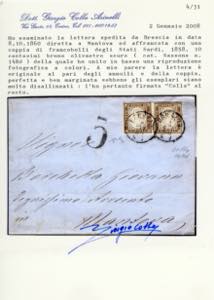 4/31
Dott. Giorgio Colla Asinelli
2 Gennaio 2008
Ho esaminato la lettera spedita da Brescia in data
8.10.1860 diretta a Mantova ed affrancata con una
coppia di francobolli degli Stati Sardi, 1858, 10
centesimi bruno olivastro scuro ( cat. Sassone n.
14Bd ) della quale ho unito in basso una riproduzione
fotografica a colori. A mio parere la lettera è
originale al pari degli annulli e della coppia,
perfetta e ben marginata sebbene gli esemplari siano
molto disallineati : l'ho pertanto firmata "Colla" al
verso.
5
Mantova
Giorgio Colla